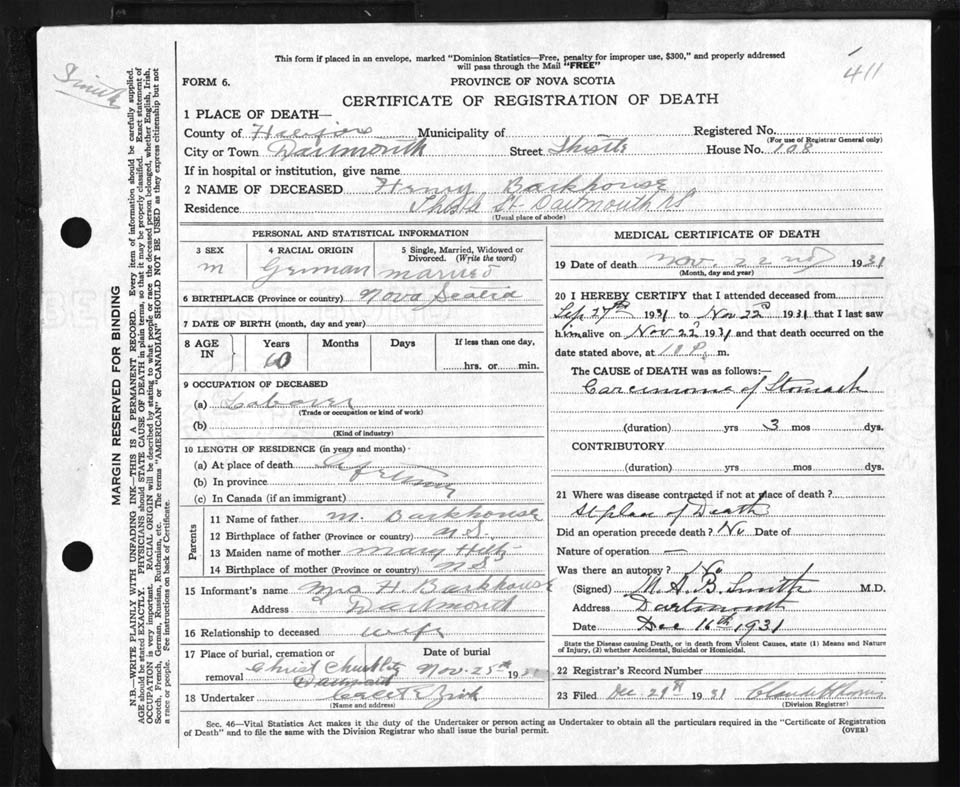 This form if placed in an envelope, marked "Dominion Statistics—Free, penalty for improper use, $300," and properly addressed
will pass through the Mail "FREE"
411
Smith
FORM 6.
PROVINCE OF NOVA SCOTIA
CERTIFICATE OF REGISTRATION OF DEATH
1 PLACE OF DEATH—
County of Halifax Municipality of Registered No.
(For use of Registrar General only)
City or Town Dartmouth Street Thistle House No. 108
If in hospital or institution, give name
2 NAME OF DECEASED Henry Barkhouse
Residence St Dartmouth NS
(Usual place of abode)
PERSONAL AND STATISTICAL INFORMATION
3 SEX
m
4 RACIAL ORIGIN
German
5 Single, Married, Widowed or
Divorced. (Write the word)
married
6 BIRTHPLACE (Province or country) Nova Scotia
7 DATE OF BIRTH (month, day and year)
8 AGE
IN
Years
60
Months
Days
If less than one day,
hrs. or min.
9 OCCUPATION OF DECEASED
(a) Laborer
(Trade or occupation or kind of work)
(b)
(Kind of industry)
10 LENGTH OF RESIDENCE (in years and months)
(a) At place of death Lifetime
(b) In province
(c) In Canada (if an immigrant)
Parents
11 Name of father M. Barkhouse
12 Birthplace of father (Province or country) N S.
13 Maiden name of mother Mary Hiltz
14 Birthplace of mother (Province or country) N S
15 Informant's name Mrs H. Barkhouse
Address Dartmouth
16 Relationship to deceased wife
17 Place of burial, cremation or
removal Christ Church
Dartmouth
Date of burial
Nov. 25th 1931
18 Undertaker
(Name and address)
MEDICAL CERTIFICATE OF DEATH
19 Date of death Nov. 22nd 1931
(Month, day and year)
20 I HEREBY CERTIFY that I attended deceased from
Sep 27th 1931 to Nov 22d 1931 that I last saw
him alive on Nov 22d 1931 and that death occurred on
the date stated above, at P. m.
The CAUSE of DEATH was as follows:
Carcinoma of Stomach
(duration) yrs 3 mos dys.
CONTRIBUTORY
(duration) yrs mos dys.
21 Where was disease contracted if not at place of death?
At place of Death
Did an operation precede death? No Date of
Nature of operation —
Was there an autopsy? No
(Signed) M. G. B. Smith M.D.
Address Dartmouth
Date Dec 16th 1931
State the Disease causing Death, or in death from Violent Causes, state (1) Means and Nature
of Injury, (2) whether Accidental, Suicidal or Homicidal.
22 Registrar's Record Number
23 Filed Dec. 29th 1931
(Division Registrar)
Sec. 46—Vital Statistics Act makes it the duty of the Undertaker or person acting as Undertaker to obtain all the particulars required in the "Certificate of Registration
of Death" and to file the same with the Division Registrar who shall issue the burial permit.
(OVER)
MARGIN RESERVED FOR BINDING
N.B.—WRITE PLAINLY WITH UNFADING INK—THIS IS A PERMANENT RECORD. Every item of information should be carefully supplied.
AGE should be stated EXACTLY. PHYSICIANS should STATE CAUSE OF DEATH in plain terms, so that it may be properly classified. Exact statement of
OCCUPATION is very important. RACIAL ORIGIN will be described by stating to what people or race the deceased person belonged, whether English, Irish,
Scotch, French, German, Russian, Ruthenian, etc. The terms "AMERICAN" or "CANADIAN" SHOULD NOT BE USED as they express citizenship but not
a race or people. See instructions on back of Certificate.